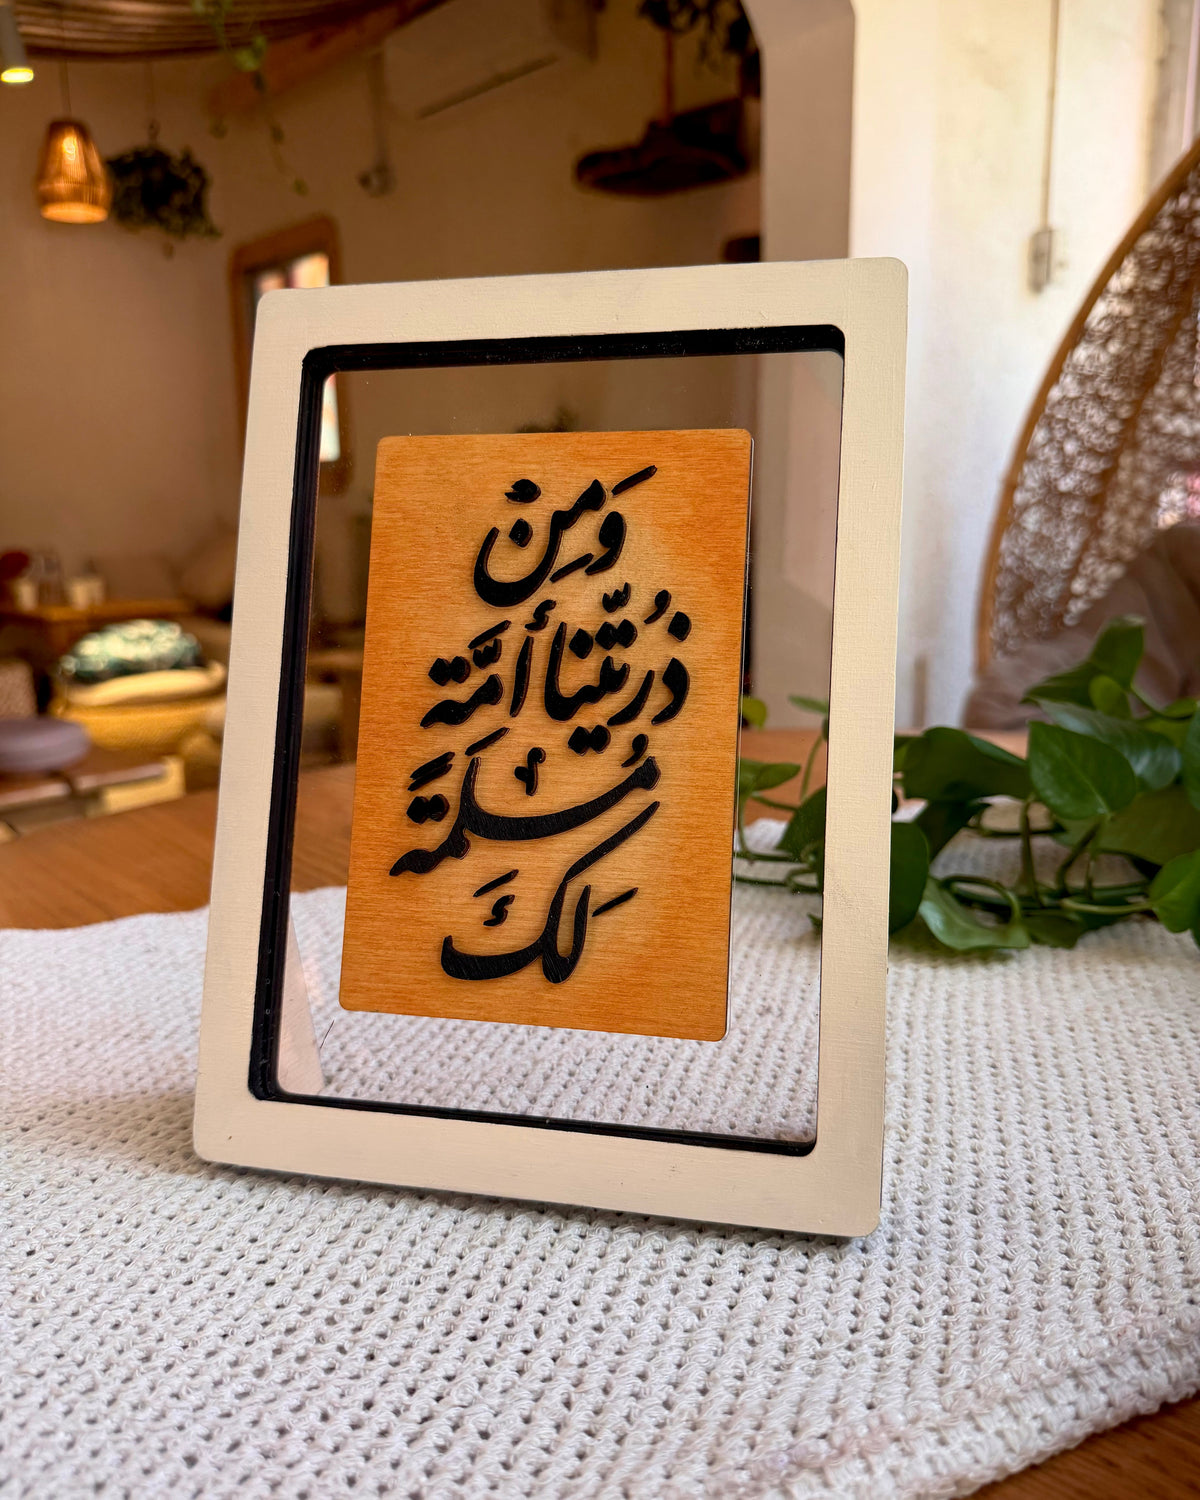 وَمِنْ
ذُرِّيَّتِنَا أُمَّةً
مُسْلِمَةً
لَكَ